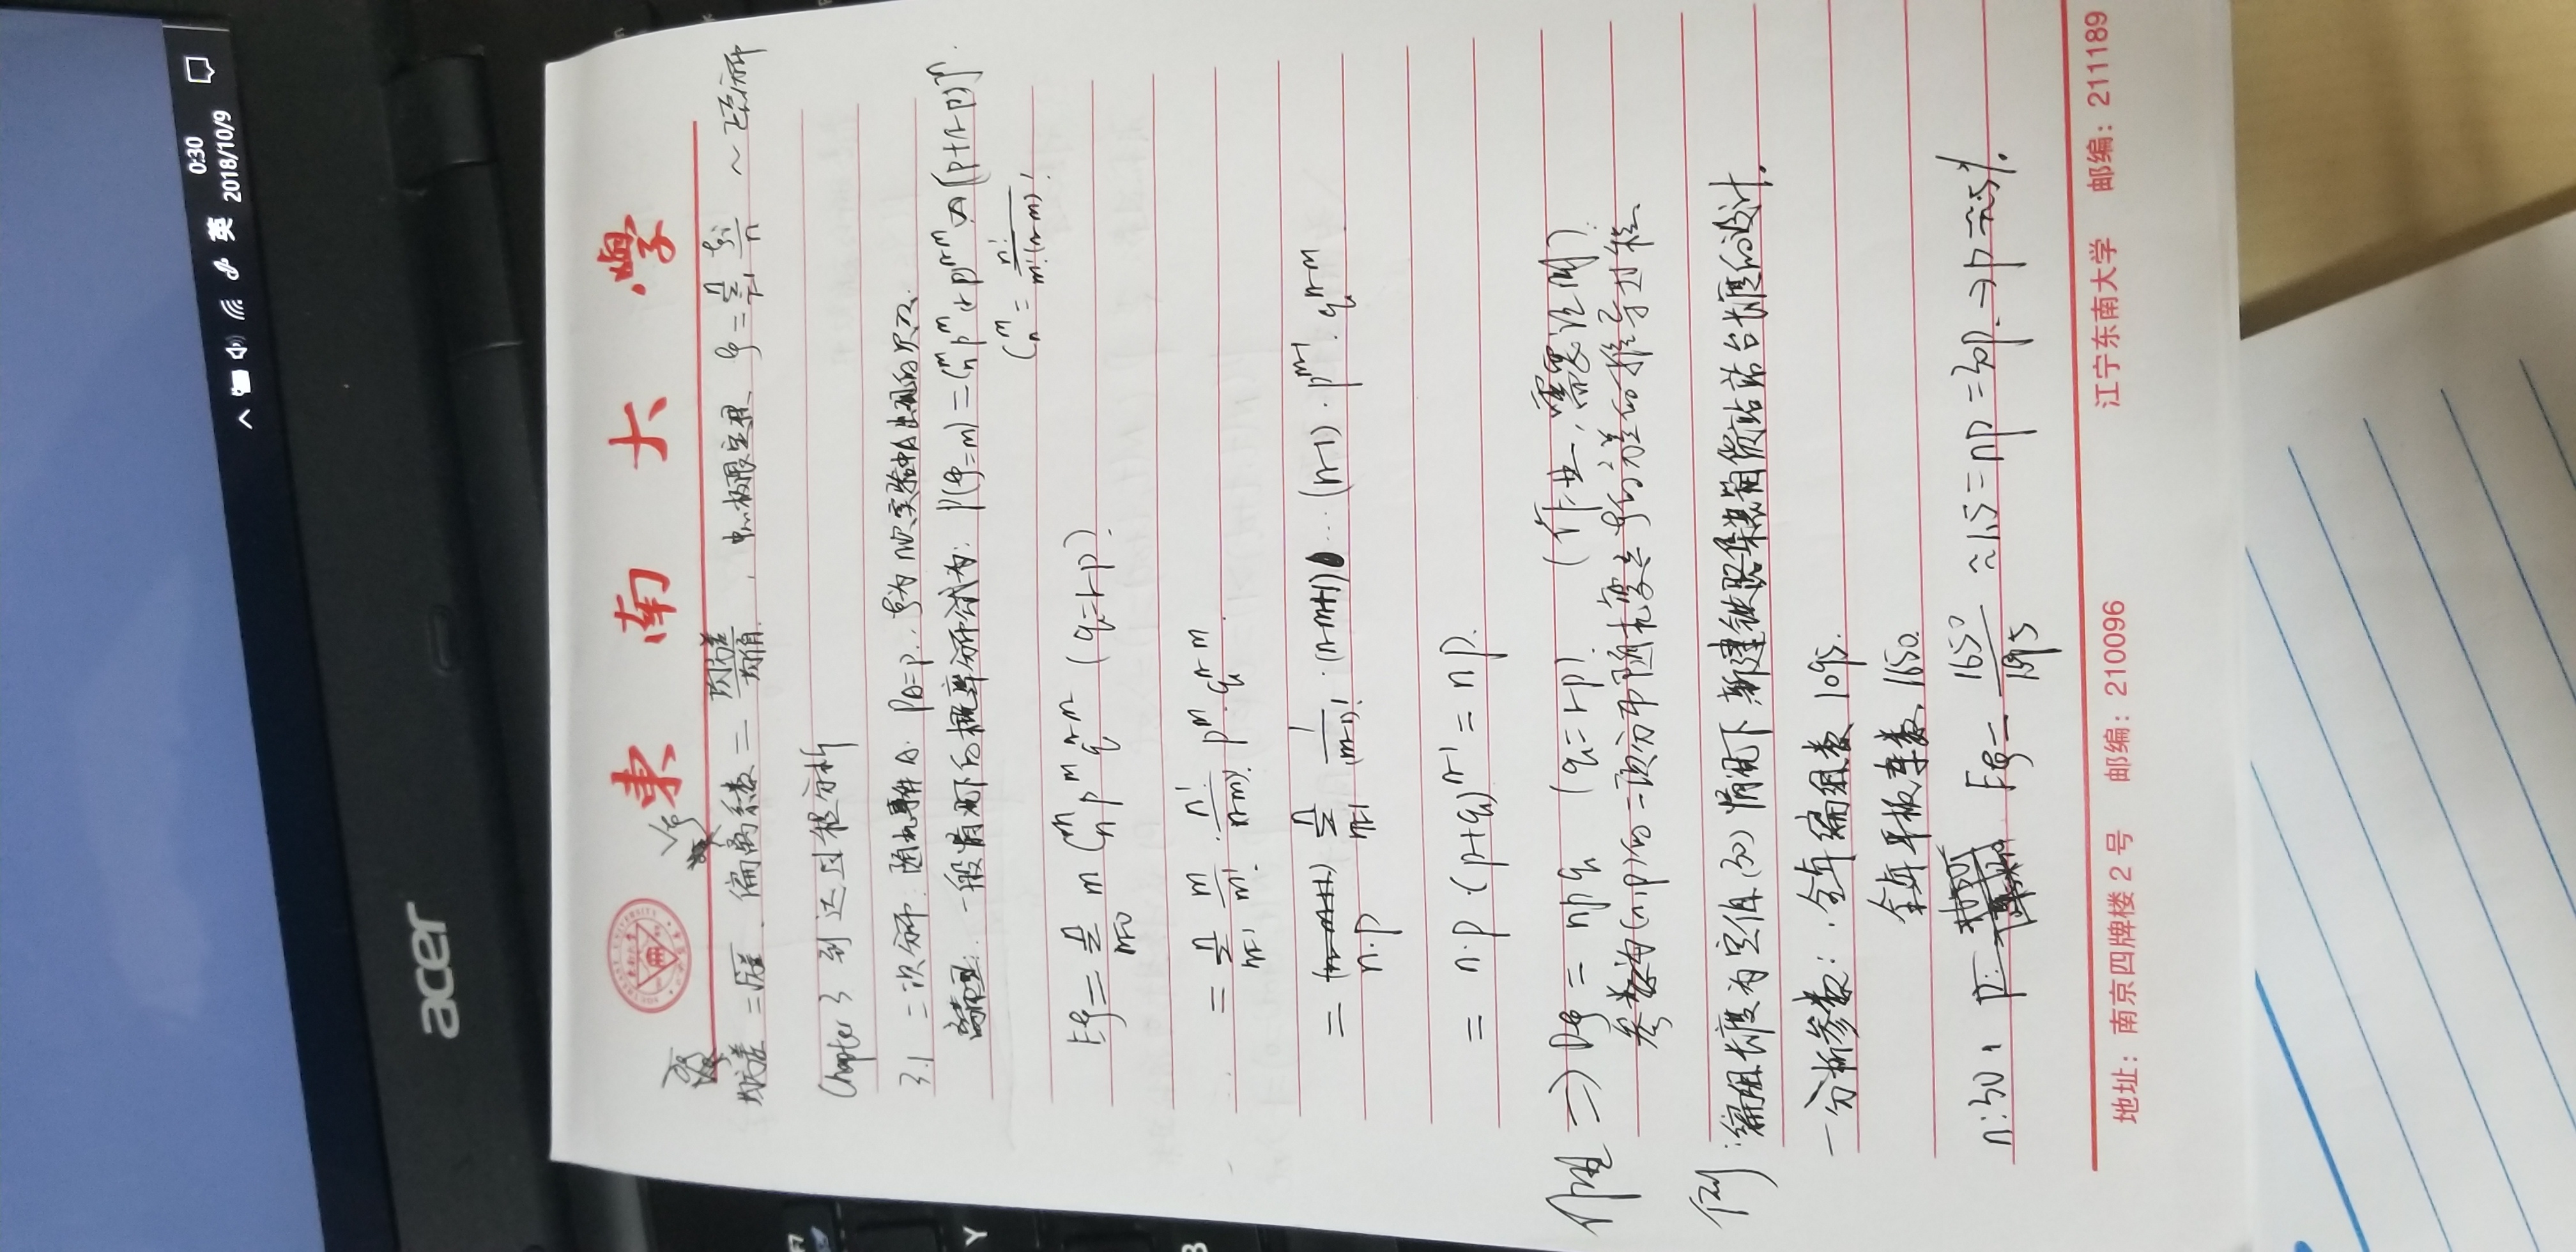 0:30
英 2018/10/9
acer
F7
Y
B
東南大學
σξ Vξ
均方差 = √方差 . 偏离系数 = 均方差/均值 , 中心极限定理 ξ = Σ(i=1→n) ξi/n ~ 正态分布
Chapter 3 到达过程分析
3.1 二次分布 随机事件A. PA=p. , ξ为n次实验中A出现的次数.
离散型: 一般情况下的概率分布公式为: P(ξ=m) = C_n^m p^m (1-p)^{n-m} [p+(1-p)]^n .
C_n^m = n!/m!(n-m)!
Eξ = Σ(m=0→n) m C_n^m p^m q^{n-m} (q=1-p)
= Σ(m=1→n) m/m! · n!/(n-m)! p^m · q^{n-m}.
= n·p Σ(m=1→n) 1/(m-1)! · (n-m+1) ··· (n-1) · p^{m-1} · q^{n-m}
= n·p ·(p+q)^{n-1} = np.
作业 ⇒ Dξ = npq (q=1-p) (作业,需要证明)
参数为(n,p)的二项分布随机变量ξ的方差的推导过程.
例:编组长度为定值(30)情况下,新建铁路集装箱货站站台长度的设计.
一分析参数: ·全年编组数 1095.
全年平板车数 1650.
n:30, Eξ = 1650/1095 ≈1.5 = np =30p. → p ≈5%.
地址:南京四牌楼 2 号 邮编:210096 江宁东南大学 邮编:211189